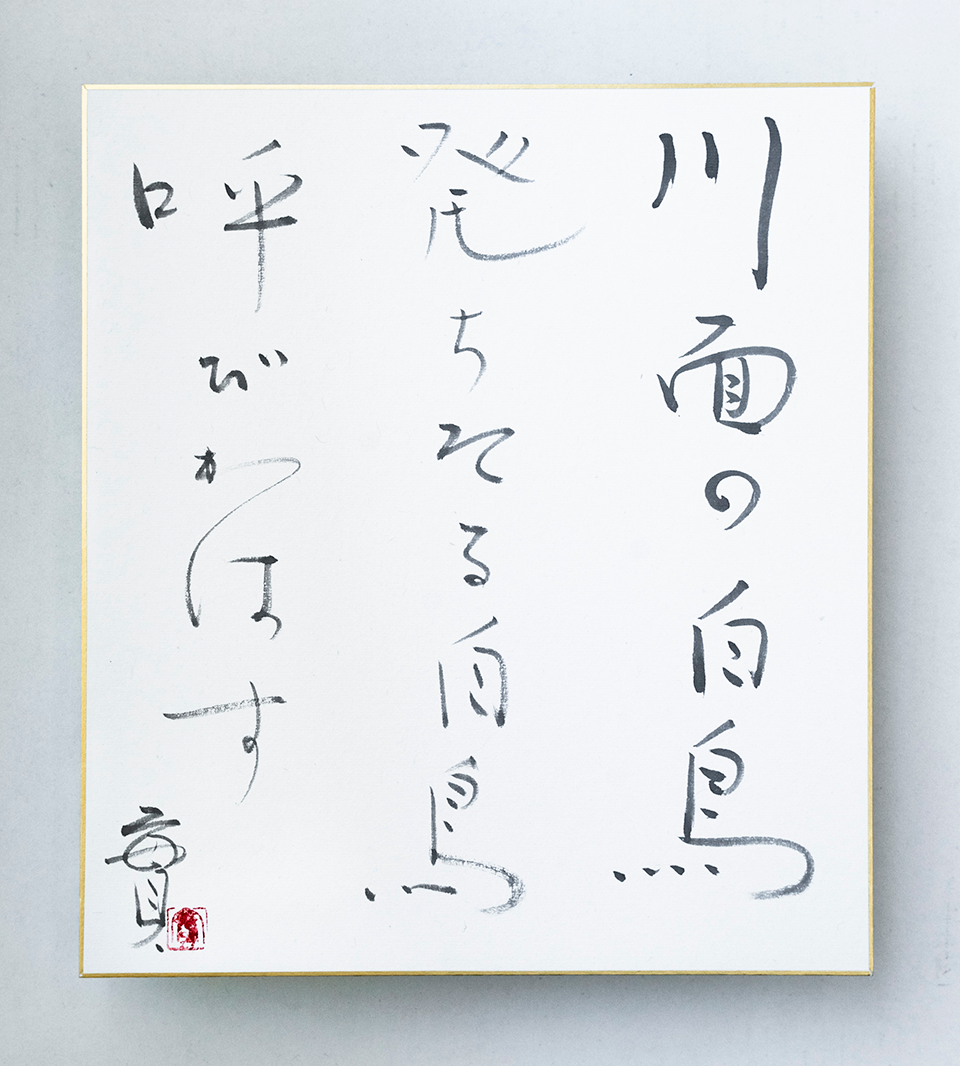 川面の白鳥
発ちそる白鳥
呼びかはす
貫